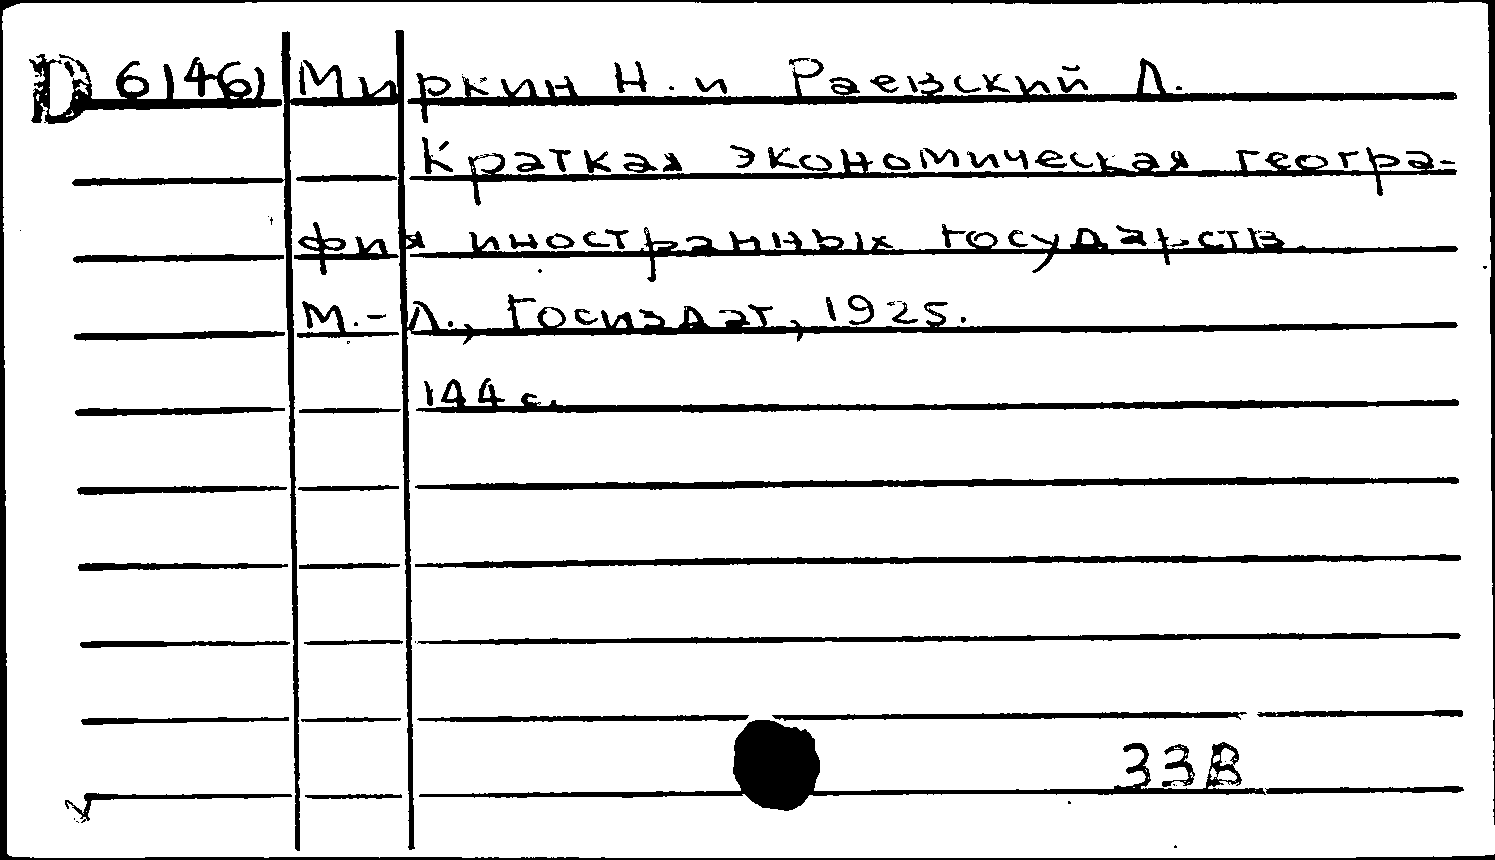 D 6/461 Миркин Н. и Раевский Л.
Краткая экономическая геогра-
фия иностранных государств.
М.-Л., Госиздат, 1925.
144 с.
33В